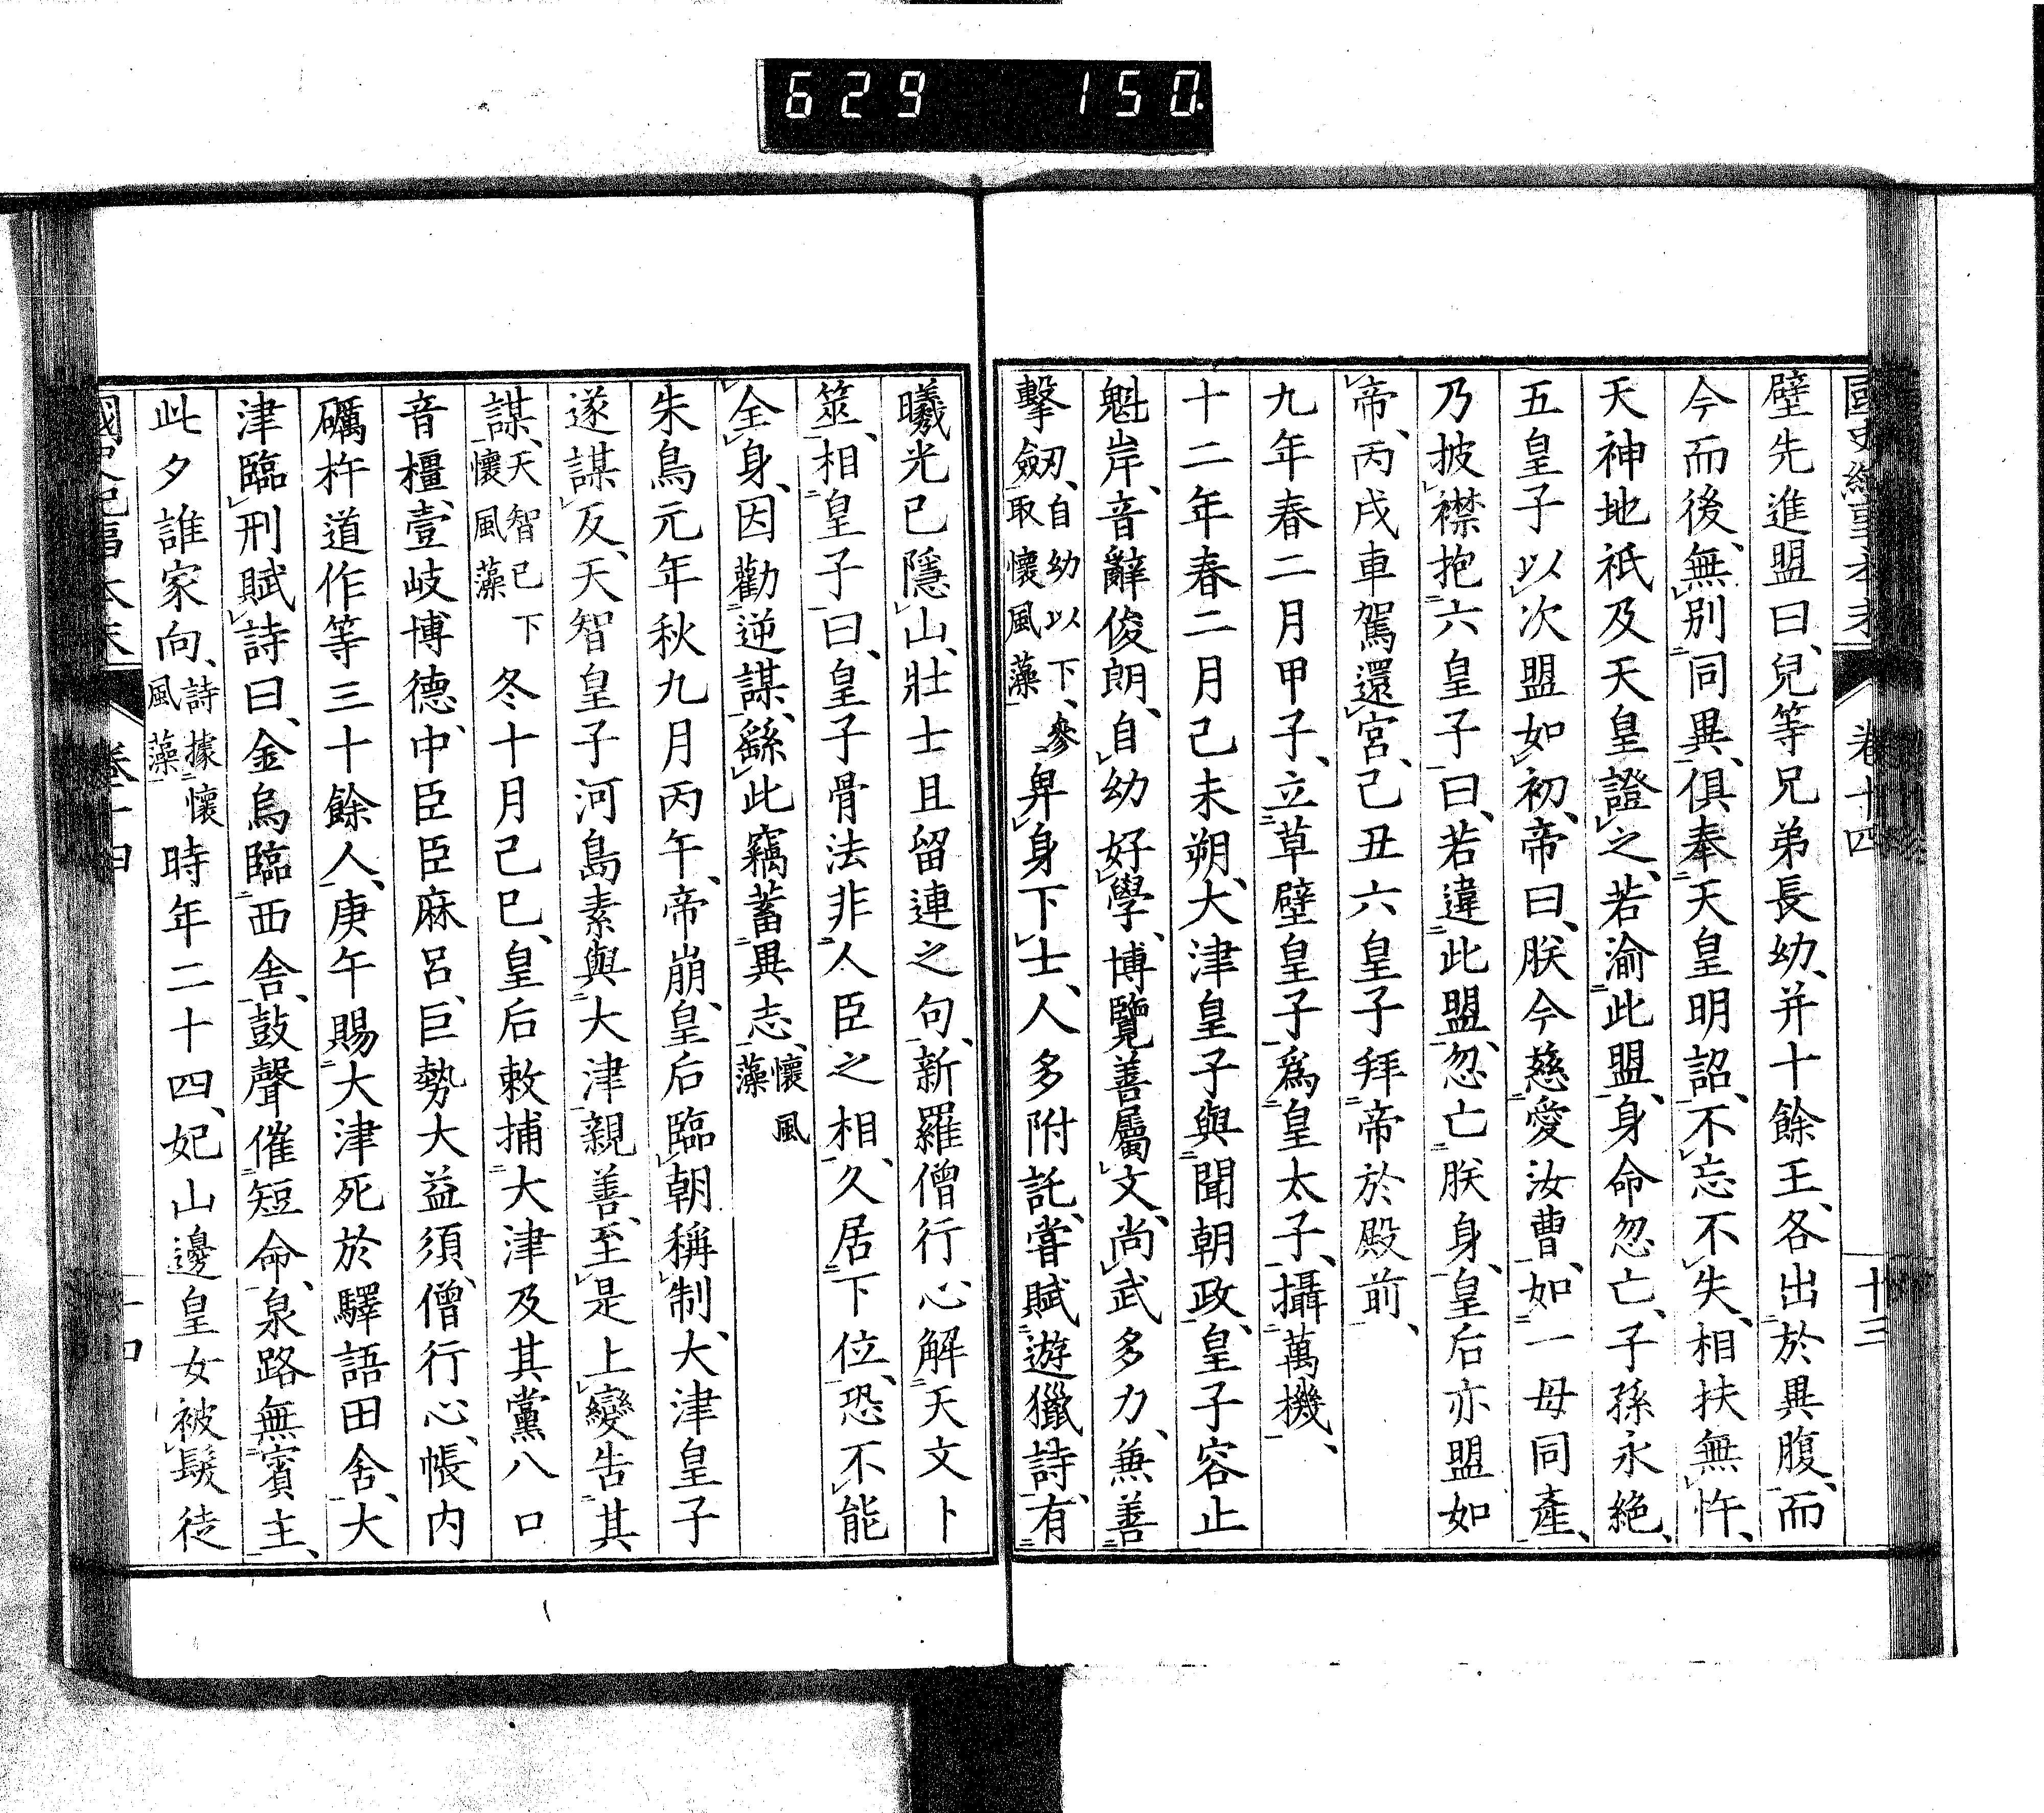 629 150
卷十四 十三
壁先進盟曰、兒等兄弟長幼、并十餘王、各出於異腹、而
今而後、無別同異、俱奉天皇明詔、不忘不失、相扶無忤、
天神地祇及天皇證之、若渝此盟、身命忽亡、子孫永絕、
五皇子以次盟如初、帝曰、朕今慈愛汝曹、如一母同產、
乃披襟抱六皇子曰、若違此盟、忽亡朕身、皇后亦盟如
帝、丙戌車駕還宮、己丑六皇子拜帝於殿前、
九年春二月甲子、立草壁皇子爲皇太子、攝萬機、
十二年春二月己未朔、大津皇子與聞朝政、皇子容止
魁岸、音辭俊朗、自幼好學、博覽善屬文、尚武多力、兼善
擊劒、自幼以下、參取懷風藻卑身下士、人多附託、嘗賦遊獵詩、有
曦光已隱山、壯士且留連之句、新羅僧行心解天文卜
筮、相皇子曰、皇子骨法非人臣之相、久居下位、恐不能
全身、因勸逆謀、繇此竊蓄異志、懷風藻
朱鳥元年秋九月丙午、帝崩、皇后臨朝稱制、大津皇子
遂謀反、天智皇子河島素與大津親善、至是上變告其
謀、天智已下懷風藻 冬十月己巳、皇后敕捕大津及其黨八口
音橿、壹岐博德、中臣臣麻呂、巨勢大益須、僧行心、帳內
礪杵道作等三十餘人、庚午賜大津死於驛語田舍、大
津臨刑賦詩曰、金烏臨西舍、鼓聲催短命、泉路無賓主、
此夕誰家向、詩據懷風藻 時年二十四、妃山邊皇女被髮徒